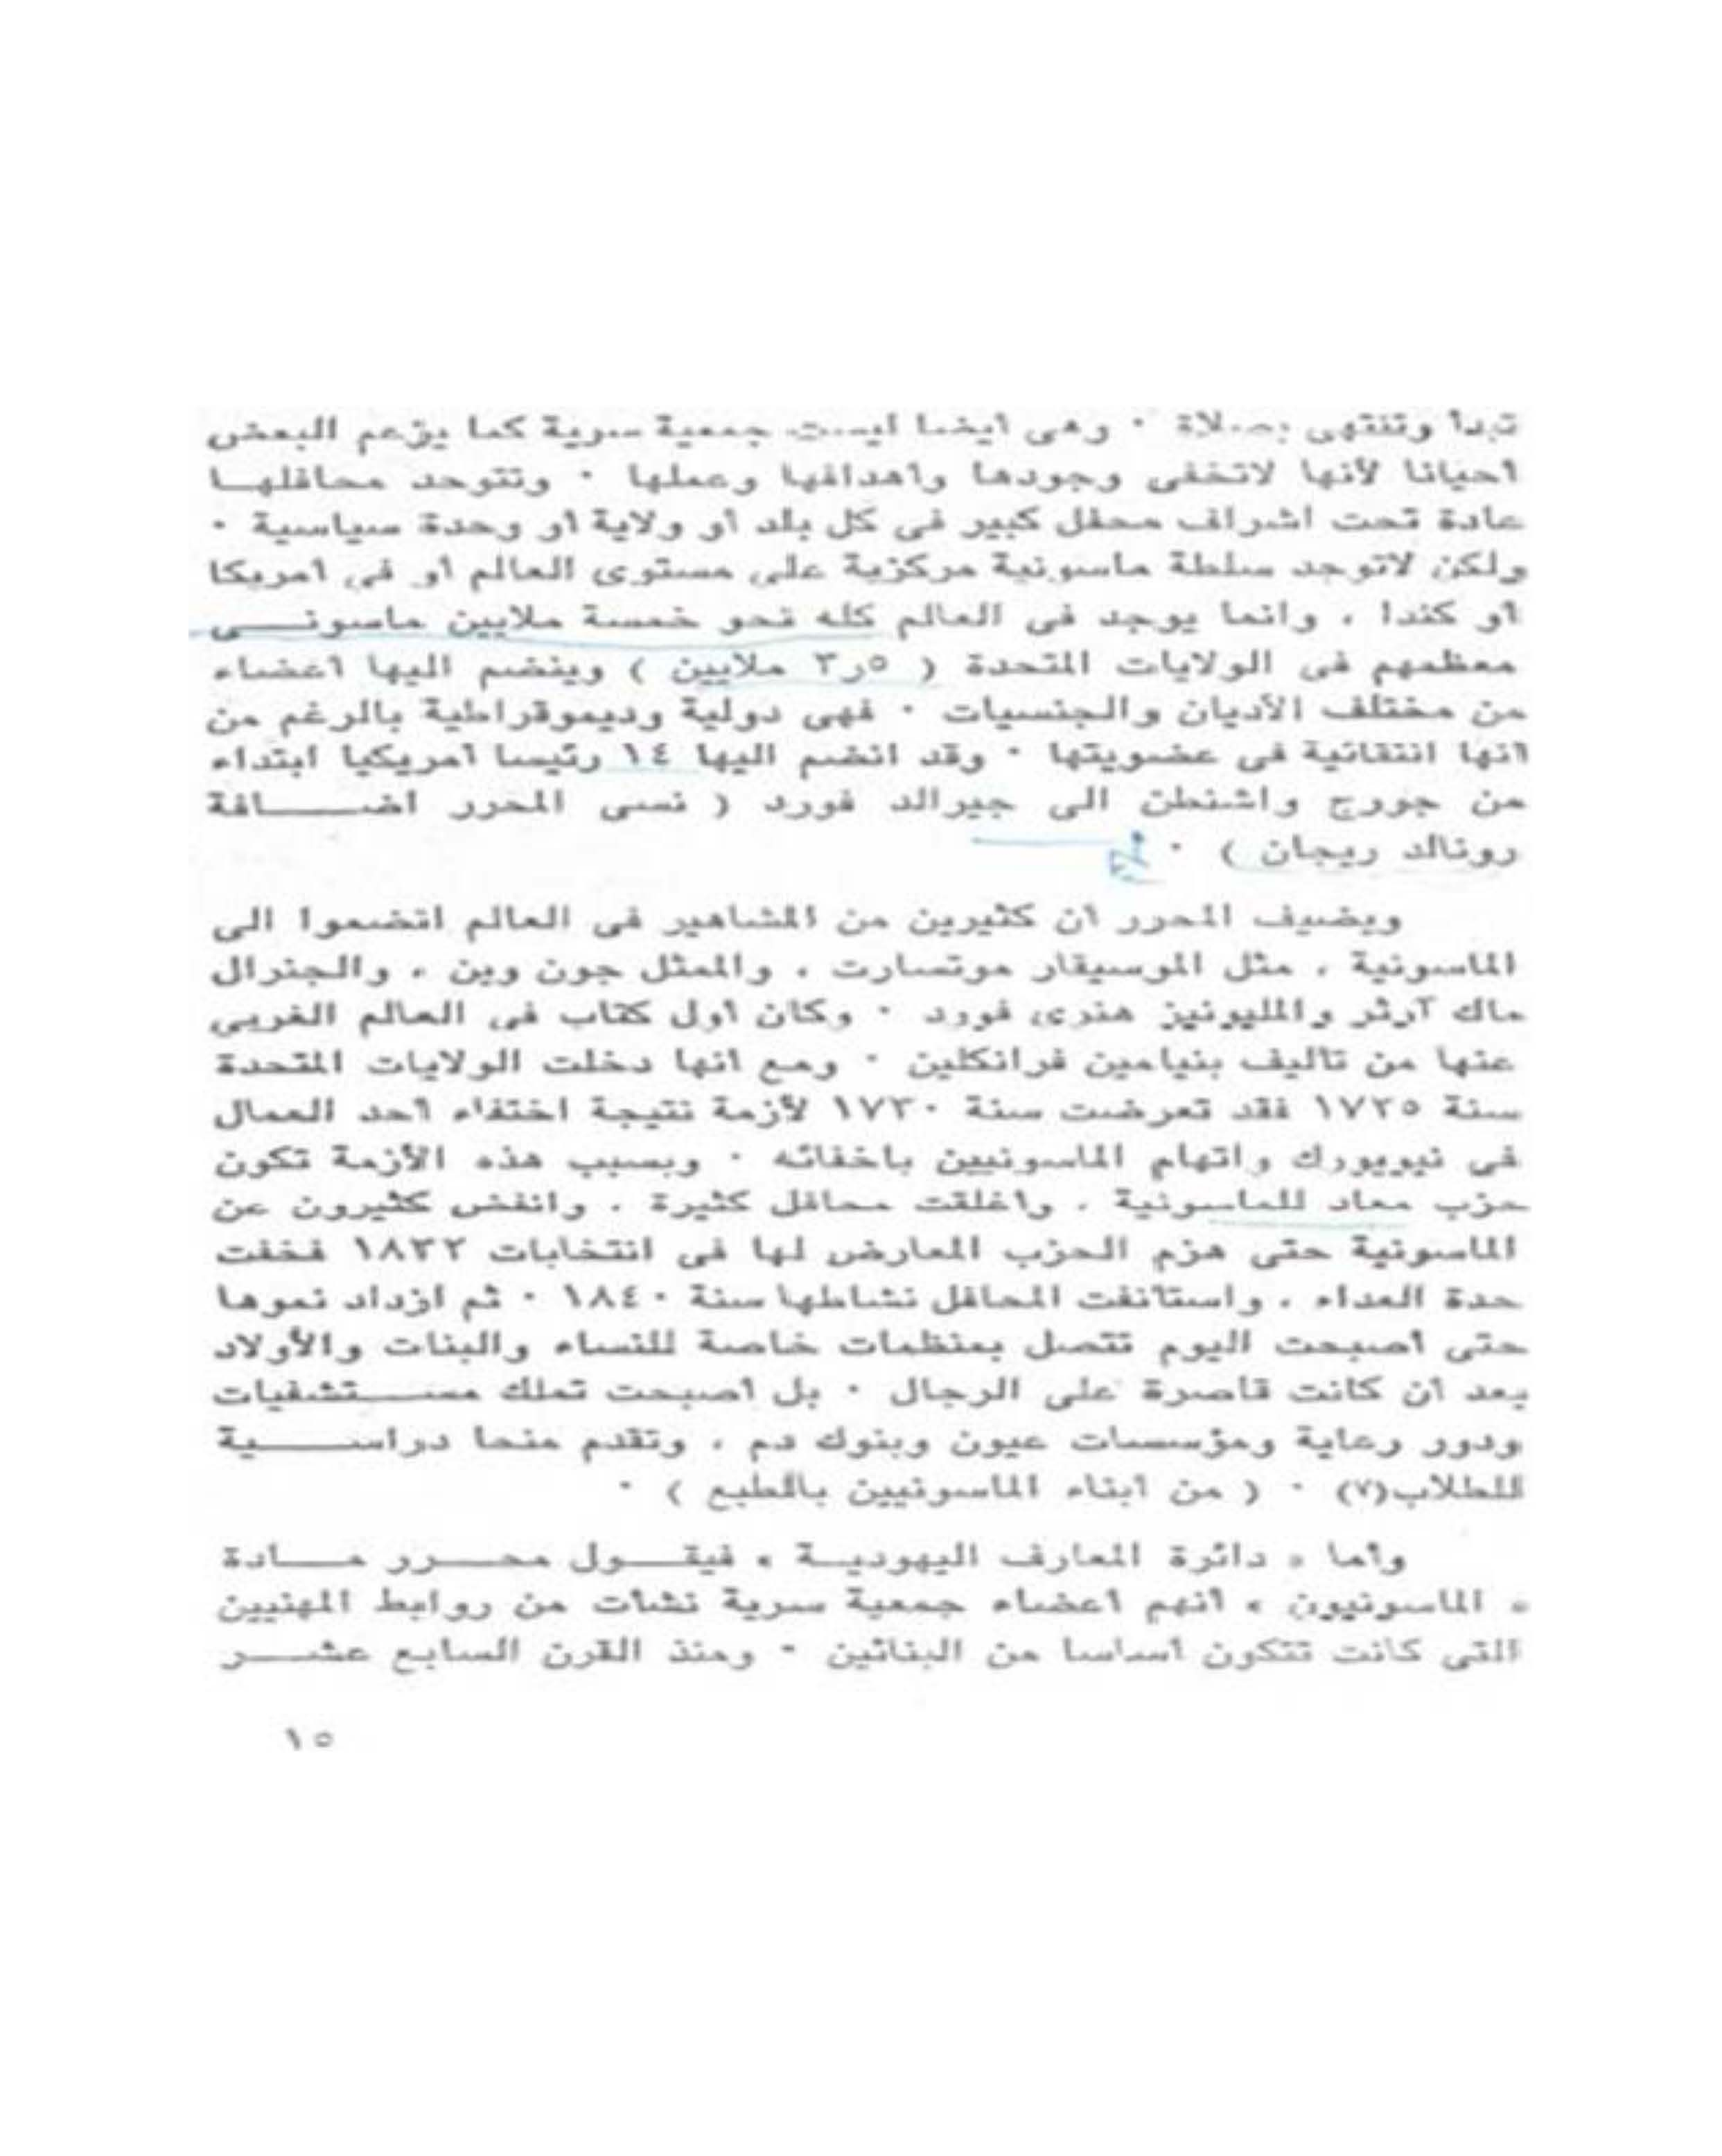 تبدأ وتنتهى بصلاة ٠ وهى أيضا ليست جمعية سرية كما يزعم البعض
أحيانا لأنها لاتخفى وجودها وأهدافها وعملها ٠ وتتوحد محافلهـا
عادة تحت اشراف محفل كبير فى كل بلد أو ولاية أو وحدة سياسية ٠
ولكن لاتوجد سلطة ماسونية مركزية على مستوى العالم أو فى أمريكا
أو كندا ، وانما يوجد فى العالم كله نحو خمسة ملايين ماسونــى
معظمهم فى الولايات المتحدة ( ٥ر٣ ملايين ) وينضم اليها أعضاء
من مختلف الأديان والجنسيات ٠ فهى دولية وديموقراطية بالرغم من
أنها انتقائية فى عضويتها ٠ وقد انضم اليها ١٤ رئيسا أمريكيا ابتداء
من جورج واشنطن الى جيرالد فورد ( نسى المحرر اضــــافة
رونالد ريجان ) ٠
ويضيف المحرر أن كثيرين من المشاهير فى العالم انضموا الى
الماسونية ، مثل الموسيقار موتسارت ، والممثل جون وين ، والجنرال
ماك آرثر والمليونيز هنرى فورد ٠ وكان أول كتاب فى العالم الغربى
عنها من تأليف بنيامين فرانكلين ٠ ومع أنها دخلت الولايات المتحدة
سنة ١٧٣٥ فقد تعرضت سنة ١٧٣٠ لأزمة نتيجة اختفاء أحد العمال
فى نيويورك واتهام الماسونيين باخفائه ٠ وبسبب هذه الأزمة تكون
حزب معاد للماسونية ، وأغلقت محافل كثيرة ، وانفض كثيرون عن
الماسونية حتى هزم الحزب المعارض لها فى انتخابات ١٨٣٢ فخفت
حدة العداء ، واستأنفت المحافل نشاطها سنة ١٨٤٠ ٠ ثم ازداد نموها
حتى أصبحت اليوم تتصل بمنظمات خاصة للنساء والبنات والأولاد
بعد أن كانت قاصرة على الرجال ٠ بل أصبحت تملك مســتشفيات
ودور رعاية ومؤسسات عيون وبنوك دم ، وتقدم منحا دراســـية
للطلاب(٧) ٠ ( من أبناء الماسونيين بالطبع ) ٠
وأما « دائرة المعارف اليهوديــة » فيقــول محـــرر مـــادة
« الماسونيون » أنهم أعضاء جمعية سرية نشأت من روابط المهنيين
التى كانت تتكون أساسا من البنائين ٠ ومنذ القرن السابع عشـــر
١٥